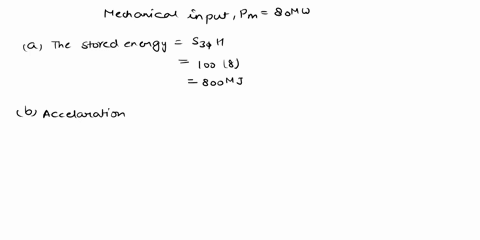 Mechanical input, Pm = 80MW
(a) The stored energy = S3φ H
= 100 (8)
= 800 MJ
(b) Accelaration